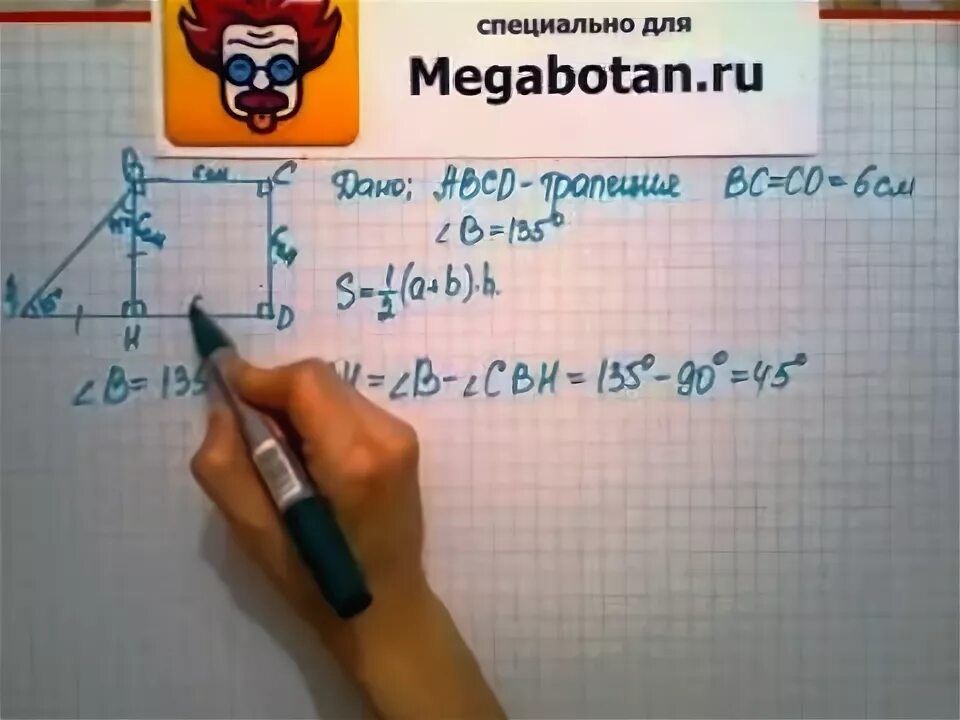 специально для
Megabotan.ru
B 6см C
Дано: ABCD - трапеция BC=CD=6см
∠B=135°
S=1/2(a+b)·h.
45° H D
∠B=135 H=∠B-∠CBH=135°-90°=45°